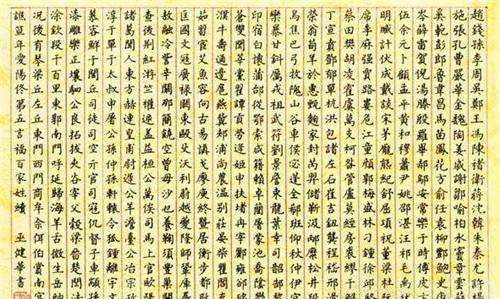 趙錢孫李周吳鄭王馮陳褚衛蔣沈韓楊朱秦尤許
施張孔曹嚴華金魏陶姜戚謝鄒喻柏水竇章雲
奚范彭郎魯韋昌馬苗鳳花方俞任袁柳酆鮑史
岑薛雷賀倪湯滕殷羅畢郝鄔安常樂于時傅皮
伍余元卜顧孟平黃和穆蕭尹姚邵湛汪祁毛禹
明臧計伏成戴談宋茅龐熊紀舒屈項祝董梁杜
席季麻強賈路婁危江童顏郭梅盛林刁鍾徐邱
蔡田樊胡凌霍虞萬支柯昝管盧莫經房裘繆干
丁宣賁鄧郁單杭洪包諸左石崔吉鈕龔程嵇邢
榮翁荀羊於惠甄麴家封芮羿儲靳汲邴糜松井
烏焦巴弓牧隗山谷車侯宓蓬全郗班仰秋仲伊
欒暴甘鈄厲戎祖武符劉景詹束龍葉幸司韶郜
印宿白懷蒲邰從鄂索咸籍賴卓藺屠蒙池喬陰
蒼雙聞莘黨翟譚貢勞逄姬申扶堵冉宰酈雍
濮牛壽通邊扈燕冀郟浦尚農溫別莊晏柴瞿閻
茹習宦艾魚容向古易慎戈廖庾終暨居衡步都
匡國文寇廣祿闕東歐殳沃利蔚越夔隆師鞏厙
敖融冷訾辛闞那簡饒空曾毋沙乜養鞠須豐巢
查後荊紅游竺權逯蓋益桓公万俟司馬上官歐陽
諸葛聞人東方赫連皇甫尉遲公羊澹臺公冶宗政
淳于單于太叔申屠公孫仲孫軒轅令狐鍾離宇文
慕容鮮于閭丘司徒司空亓官司寇仉督子車顓孫
漆雕樂正壤駟公良拓跋夾谷宰父穀梁晉楚閆法
涂欽段干百里東郭南門呼延歸海羊舌微生岳帥
況後有琴梁丘左丘東門西門商牟佘佴伯賞南宮
譙笪年愛陽佟第五言福百家姓續 巫健華書